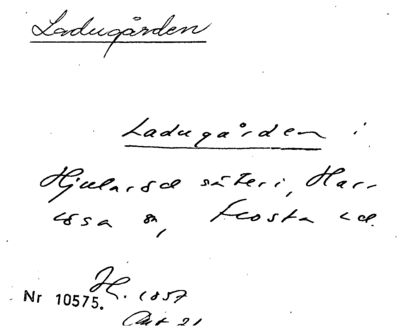 Ladugården
Ladugården i
Hjularöd säteri, Har-
lösa sn, Frosta hd.
H. 1857
Nr 10575.
Akt 21